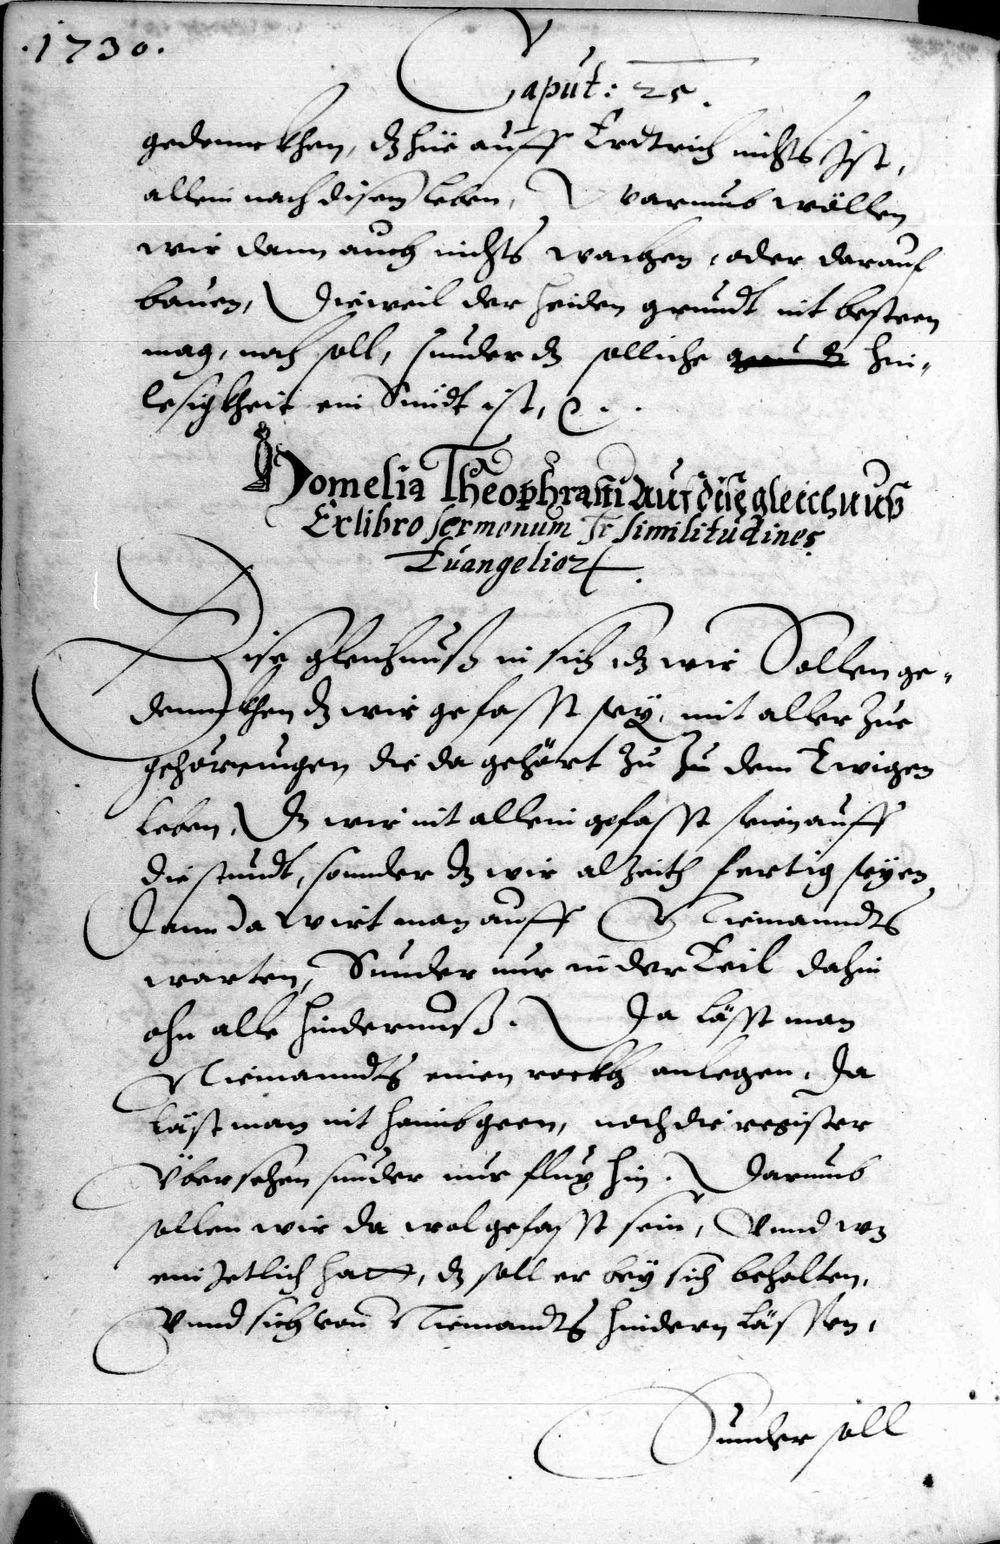 .1730.
Caput: 25.
gedennckhen, dz hüe auff Erdtrich nichts Ist,
allein nach disem Leben, Warumb wöllen
wir dann auch nichts machen, oder darauf
bauen, Dieweil der Heiden grundt nit besteen
mag, noch soll, sunder dz solliche hin„
lesigkheit ein Sündt ist,
Homelia Theophrasti Auf dise gleichnus
Ex libro sermonum In similitudines
Euangelior
Dise gleichnuß in sich dz wir Sollen ge„
denckhen dz wir gefasst sey, mit aller Zue
gehörungen die da gehört Zu Zu dem Ewigen
Leben, Dz wir nit allein gefasst seien auff
die stundt, sonnder dz wir alzeith fertig seyen
Dann da wirt man auff Niemanndts
warten, Sunder nur in der Eeil dahin
ohn alle Hindernuß. Da Lässt man
Niemanndts einen rockh anlegen, Da
Läst man nit haimbgeen, noch die register
Vbersehen sunder nur flux hin. Darumb
sollen wir da wol gefasst sein, Vnnd wz
ein Jetlich hatt, dz soll er bey sich behalten,
Vnnd sich von Niemandts hindern Lässen,
Sunder soll